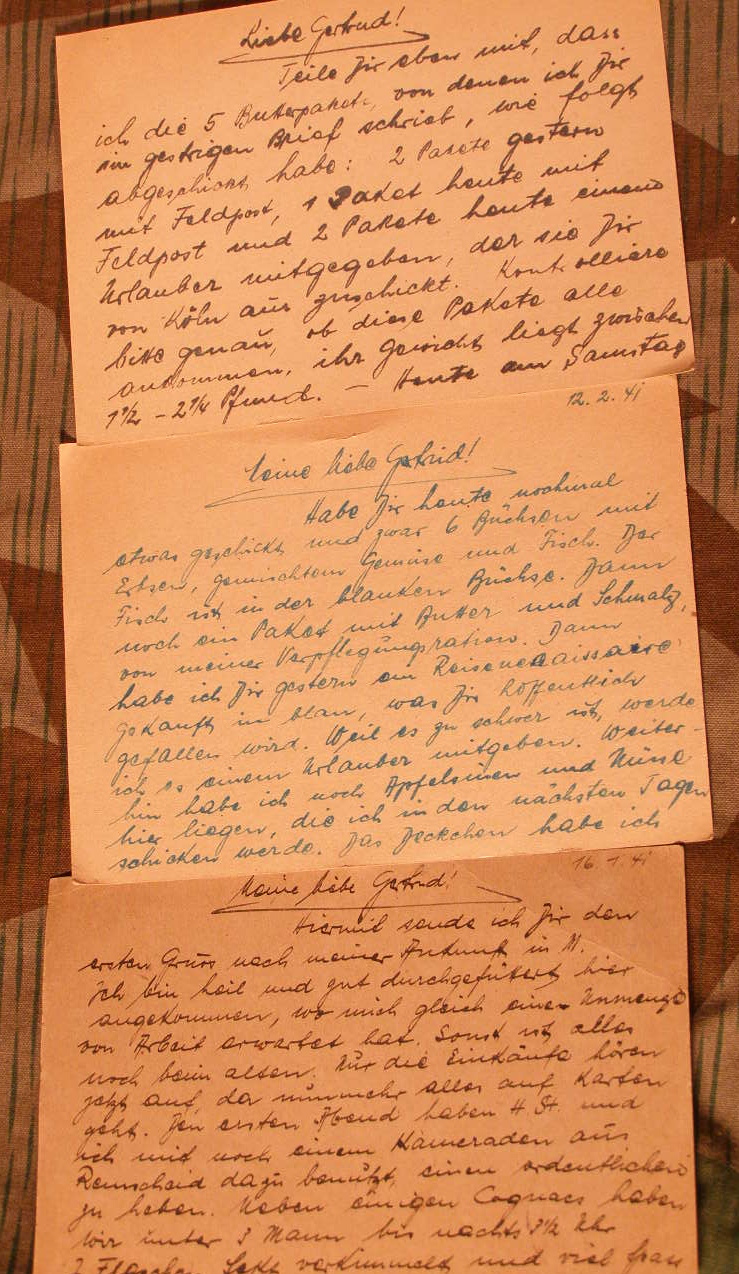 Liebe Gertrud!
Teile Dir eben mit, dass
ich die 5 Butterpakete, von denen ich Dir
im gestrigen Brief schrieb, wie folgt
abgeschickt habe: 2 Pakete gestern
mit Feldpost, 1 Paket heute mit
Feldpost und 2 Pakete heute einem
Urlauber mitgegeben, der sie Dir
von Köln aus zuschickt. Kontrolliere
bitte genau, ob diese Pakete alle
ankommen, ihr Gewicht liegt zwischen
1½ - 2¼ Pfund. - Heute am Samstag
12. 2. 41
Meine liebe Gertrud!
Habe Dir heute nochmal
etwas geschickt und zwar 6 Büchsen mit
Erbsen, gemischtem Gemüse und Fisch. Der
Fisch ist in der blanken Büchse. Dann
noch ein Paket mit Butter und Schmalz,
von meiner Verpflegungsration. Dann
habe ich Dir gestern ein Reisenecaissaire
gekauft in blau, was Dir hoffentlich
gefallen wird. Weil es zu schwer ist, werde
ich es einem Urlauber mitgeben. Weiter-
hin habe ich noch Apfelsinen und Nüsse
hier liegen, die ich in den nächsten Tagen
schicken werde. Das Deckchen habe ich
16. 1. 41
Meine liebe Gertrud!
Hiermit sende ich Dir den
ersten Gruss nach meiner Ankunft in M.
Ich bin heil und gut durchgefüttert hier
angekommen, wo mich gleich eine Unmenge
von Arbeit erwartet hat. Sonst ist alles
noch beim alten. Nur die Einkäufe hören
jetzt auf, da nunmehr alles auf Karten
geht. Den ersten Abend haben H. St. und
ich mit noch einem Kameraden aus
Remscheid dazu benützt, einen ordentlichen
zu heben. Neben einigen Cognacs haben
wir unter 3 Mann bis nachts 3½ Uhr
Flaschen Sekt verkümmelt und viel